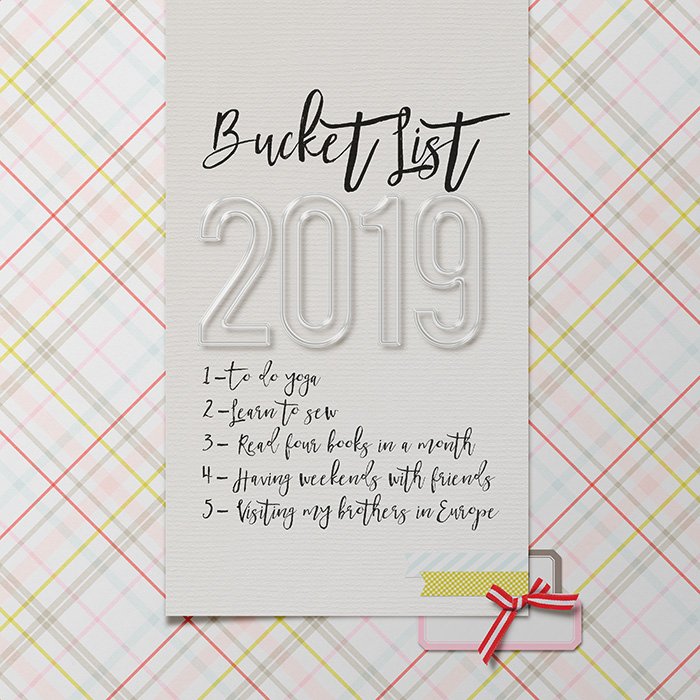 Bucket List
2019
1 - to do yoga
2 - Learn to sew
3 - Read four books in a month
4 - Having weekends with friends
5 - Visiting my brothers in Europe